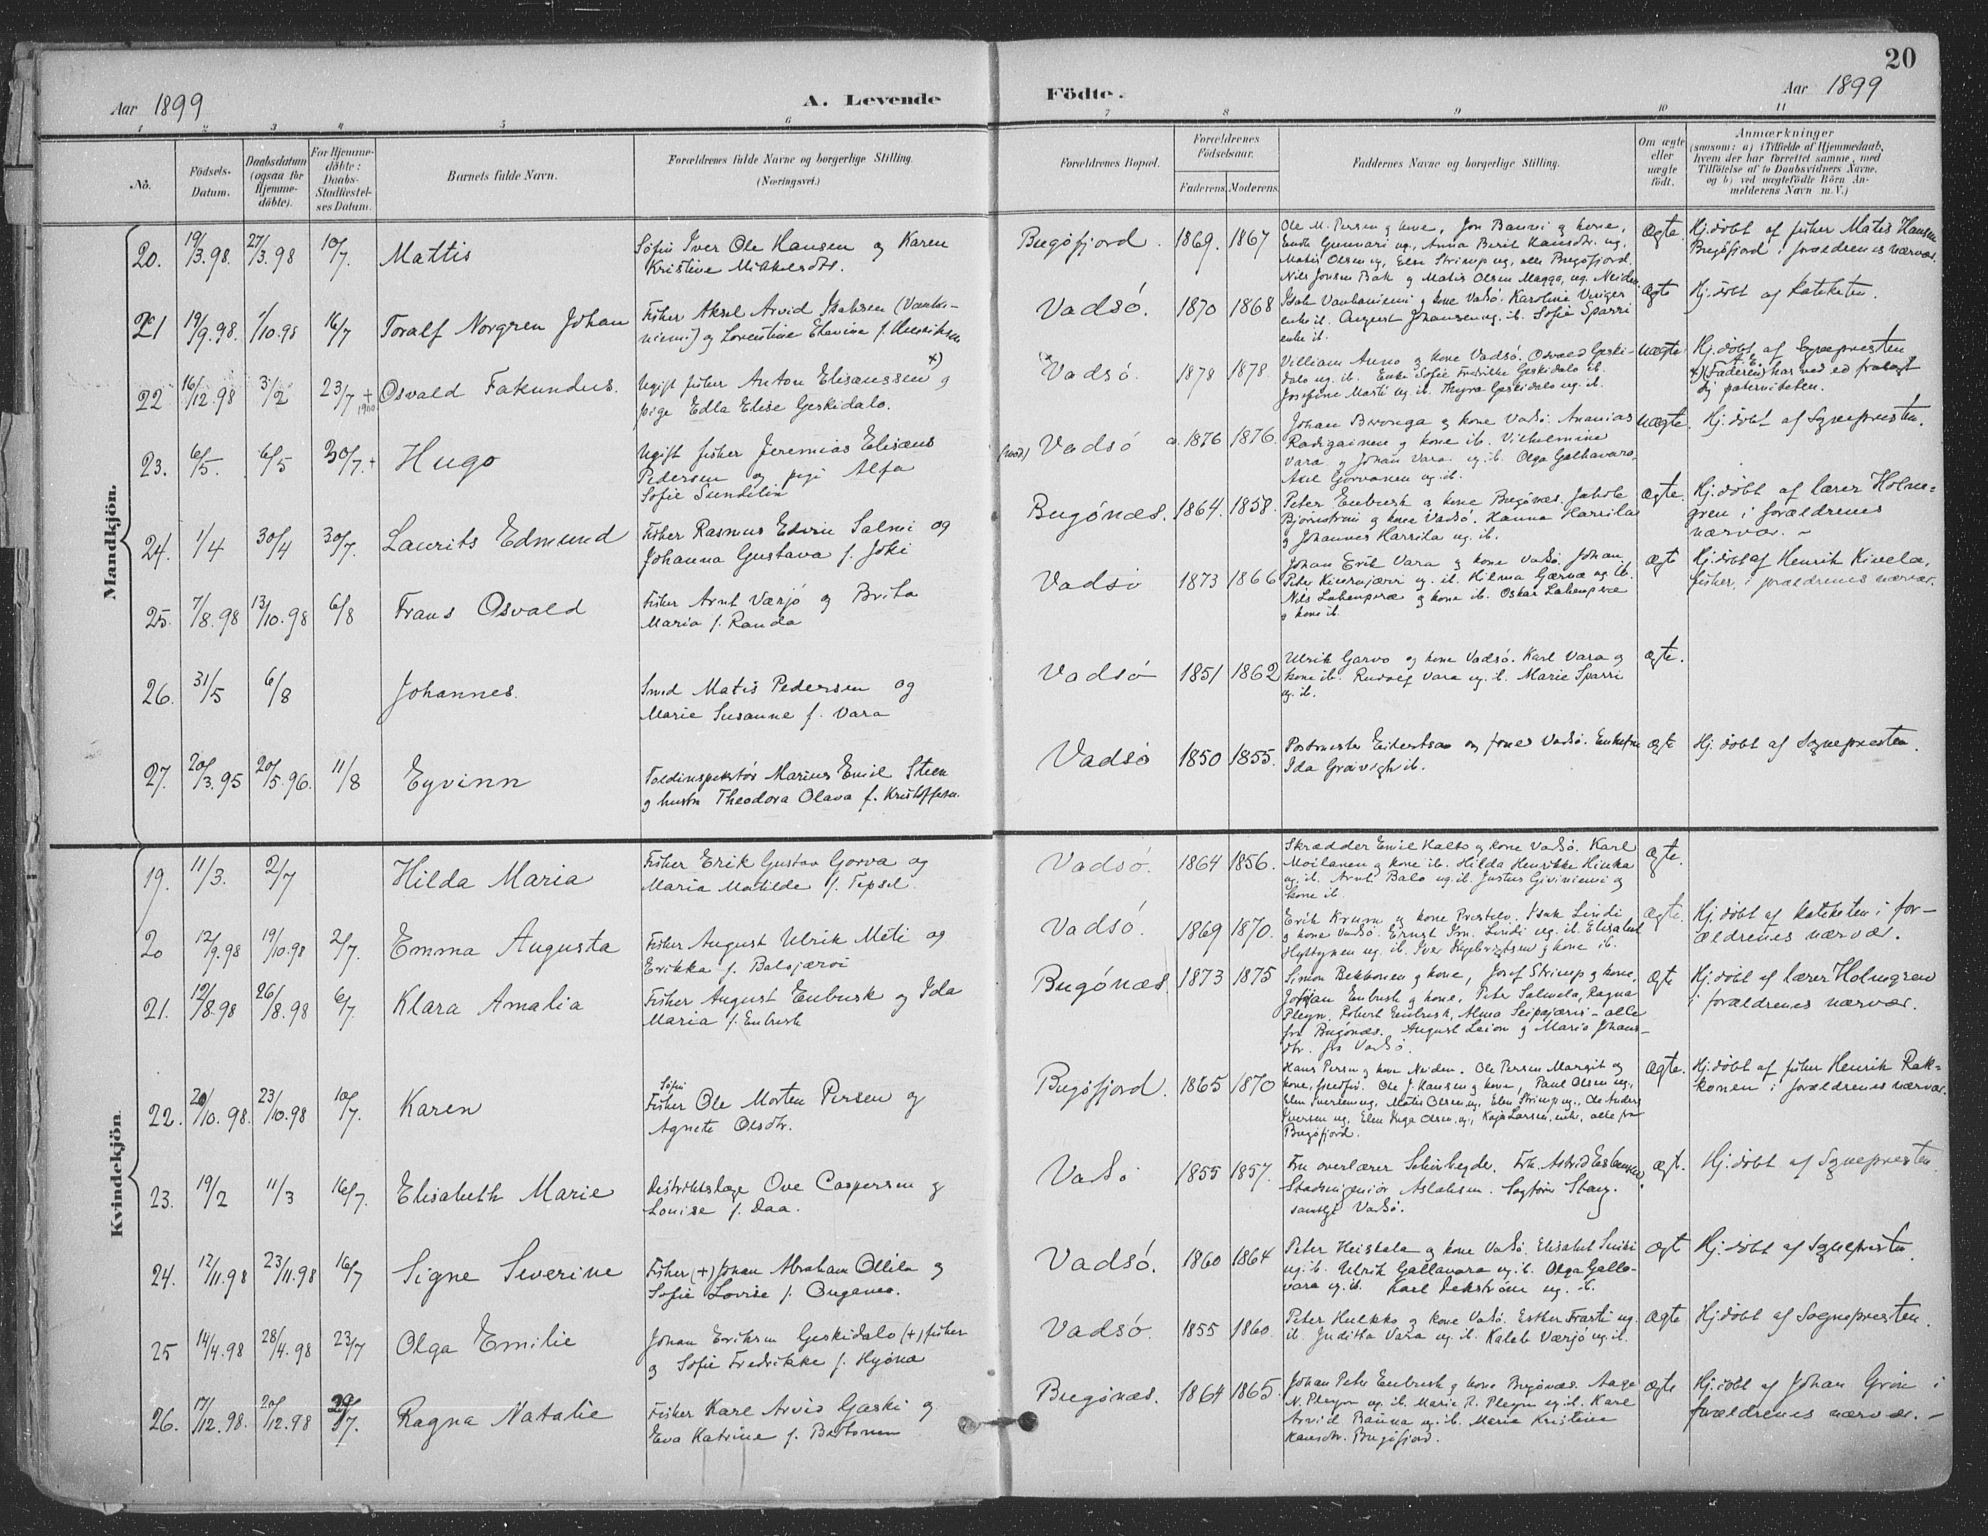 20
Aar 1899
A. Levende
Födte.
Aar 1899
1 2 3 4 5 6 7 8 9 10 11
No.
Födsels-
Datum.
Daabsdatum
(ogsaa for
Hjemme-
döbte).
For Hjemme-
döbte:
Daabs-
Stadfæstel-
ses Datum.
Barnets fulde Navn.
Forældrenes fulde Navne og borgerlige Stilling.
(Næringsvei.)
Forældrenes Bopæl.
Forældrenes
Födselsaar.
Faderens. Moderens.
Faddernes Navne og borgerlige Stilling.
Om ægte
eller
uægte
födt.
Anmærkninger
(saasom: a) i Tilfælde af Hjemmedaab,
hvem der har forrettet samme, med
Tilföielse af to Daabsvidners Navne,
og b) ved uægtefödte Börn An-
melderens Navn m. V.)
Mandkjön.
20. 19/3.98. 27/3.98 10/7. Mattis
Søfin Iver Ole Hansen og Karen
Kristine Mikkelsdtr.
Bugøfjord. 1869. 1867
Ole M. Persen og kone, Jon Banni og kone,
Matis Olsen ug, Else Strimp ug, alle Bugøfjord.
ægte
Hj. døbt af fisher Matis Hansen
Bugøfjord i forældrenes nærvær.
21 19/9.98. 1/10.98 16/7 Toralf Norgren Johan
Fisher Aksel Arvid Isaksen
og Lorentine Elevine f. Henriksen
Vadsö. 1870 1868
ægte
Hj. döbt af kateketen.
22 16/12.98 3/2 23/7 + 1900 Osvald Fakundus.
Ugift fisher Anton Elisæussen +) og
pige Edla Elise Geskidalo.
+ Vadsö. 1878 1878.
William Anno og kone Vadsö. Osvald Geski-
dalo ug. ib. Enke Sofie Fredrikke Geskidalo ib.
Josefine Marti ug. ib. Thyra Geskidalo ug. ib.
uægte
Hj. døbt af Sognepresten
+) (Faderen) har ved ed fralagt
sig paterniteten.
23. 6/5. 6/5 30/7.+ Hugo
Ugift fisher Jeremias Elisæus
Pedersen og pige Alfa
Sofie Sundelin
Vadsö 1876 1876.
Johan Bwonga og kone Vadsö. Ananias
Radigainen og kone ib. Vilhelmine
Vara og Johan Vara ug. ib. Olga Gallavara,
Axel Gorvonen ug. ib.
uægte.
Hj. döbt af Sognepresten.
24. 1/4 30/4 30/7. Laurits Edmund
Fisher Rasmus Edvin Salmi og
Johanna Gustava f. Joki
Bugönæs. 1864 1858.
Peter Enbusk og kone Bugönæs. Jakob
og kone Vadsö. Hanna Harrila
og Johannes Harrila ug. ib.
ægte.
Hj. döbt af lærer Holm-
gren i forældrenes
nærvær. –
25. 7/8.98 13/10.98 6/8 Frans Osvald
Fisher Arnt Værjö og Brita
Maria f. Randa
Vadsö 1873 1866
Johan Erik Vara og kone Vadsö. Johan
ug. ib. Hilma Gærvæ ug. ib.
Nils Lahenperæ og kone ib. Oskar Lahenperæ
og kone ib.
ægte
Hj. döbt af Henrik Kivelæ,
fisher, i forældrenes nærvær.
26. 31/5 6/8 Johannes.
Smed Matis Pedersen og
Marie Susanne f. Vara
Vadsö 1851 1862
Ulrik Garvo og kone Vadsö. Karl Vara og
kone ib. Rudolf Vara ug. ib. Marie Sparri
ug. ib.
ægte.
27. 20/3.95 20/5.96. 11/8 Eyvinn
Toldinspektör Marius Emil Steen
og hustru Theodora Olava f. Kristoffersen.
Vadsö 1850 1855.
Postmester Eilertsen og frue Vadsö. Enkefru
Ida Gravigh ib.
ægte
Hj. döbt af Sognepresten.
Kvindekjön.
19. 11/3. 2/7 Hilda Maria
Fisher Erik Gustav Gorva og
Maria Matilde f. Tepsel.
Vadsö. 1864 1856.
Skrædder Emil Kallo og kone Vadsö. Karl
Moilanen og kone ib. Hilda Henrikke Hinka
ug. ib. Arnt Balo ug. ib. Justus Giviniemi og
kone ib.
ægte.
20 12/9.98 19/10.98 2/7. Emma Augusta
Fisher August Ulrik Meti og
Erikka f. Balojærvi
Vadsö. 1869 1870.
Erik Krumm og kone Presteln. Isak Lindi
og kone Vadsö. Ernst Im. Lindi ug. ib. Elisabet
Hyttynen ug. ib. Iver Ingebrigtsen og kone ib.
ægte.
Hj. döbt af kateketen i for-
ældrenes nærvær.
21. 12/8.98 26/8.98 6/7. Klara Amalia
Fisher August Enbusk og Ida
Maria f. Enbusk
Bugönæs. 1873 1875
Simon Bekkonen og kone, Josef Strimp og kone,
Johan Enbusk og kone. Peter Salmela, Ragna
Pleym, Robert Enbusk, Alma Seipajærvi – alle
fra Bugönæs. August Leion og Maria Johans-
dtr. fra Vadsö.
ægte
Hj. döbt af lærer Holmgren
i forældrenes nærvær.
22. 20/10.98. 23/10.98 10/7. Karen
Søfin
Fisher Ole Morten Persen og
Agnete Olsdtr.
Bugøfjord. 1865 1870
Hans Persen og kone Neiden. Ole Persen Margit og
kone, Ole J. Hansen og kone, Paul Olsen ug.,
Elen Iversen ug, Matis Olsen ug, Elen Strimp ug., Ole Anders
Iversen ug, Elen Inga Olsen ug, Kaja Larsen, enke, alle fra
Bugøfjord.
ægte.
Hj. döbt af fisher Henrik Rak-
konen i forældrenes nærvær.
23. 19/2 11/3 16/7. Elisabeth Marie
Distriktslæge Ove Caspersen og
Louise f. Daa.
Vadsö 1855 1857.
Fru overlærer Frk. Astrid Esbensen,
Stadsingeniör Aslaksen. Sagförer Stang.
samtlige Vadsö.
ægte.
Hj. döbt af Sognepresten.
24. 12/11.98 23/11.98 16/7 Signe Severine
Fisher (+) Johan Abraham Ollila og
Sofie Lovise f. Onganes.
Vadsö. 1860 1864
Peter Heiskala og kone Vadsö. Elisabet
ug. ib. Ulrik Gallavara ug. ib. Olga Galla-
vara ug. ib. Karl Lekström ug. ib.
ægte
Hj. döbt af Sognepresten.
25 14/4.98 28/4.98 23/7 Olga Emilie
Johan Eriksen Geskidalo (+) fisher
og Sofie Fredrikke f. Hyönæ
Vadsö. 1855 1860.
Peter Hukko og kone Vadsö. Esther Frasti ug.
ib. Juditha Vara ug. ib. Kaleb Værjö ug. ib.
ægte
Hj. döbt af Sognepresten.
26. 17/12.98. 20/12.98 29/7. Ragna Natalie
Fisher Karl Arvid Gaski og
Eva Katrine f. Bertonen
Bugönæs. 1864 1865.
Johan Peter Enbusk og kone Bugönæs. Aage
N. Pleym ug. ib. Marie P. Pleym ug. ib. Karl
Arvid Banna ug. ib. Maria Kristine
Hansdtr. Bugøfjord.
ægte
Hj. döbt af Johan Grön i
forældrenes nærvær. –